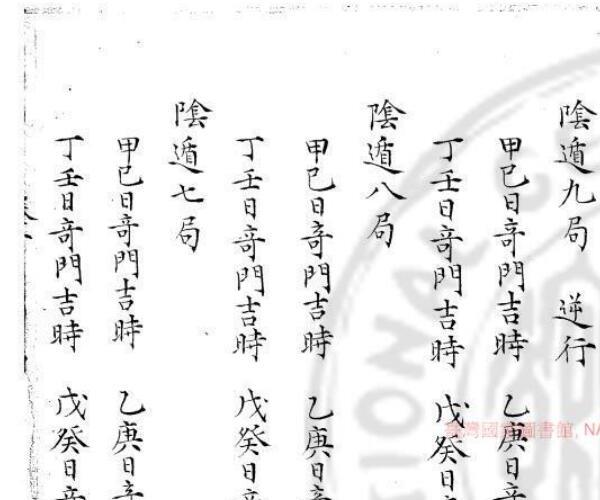 陰遁九局 逆行
甲巳日竒門吉時 乙庚日竒
丁壬日竒門吉時 戊癸日竒
陰遁八局
甲巳日竒門吉時 乙庚日竒
丁壬日竒門吉時 戊癸日竒
陰遁七局
甲巳日竒門吉時 乙庚日竒
丁壬日竒門吉時 戊癸日竒
臺灣國家圖書館, NA